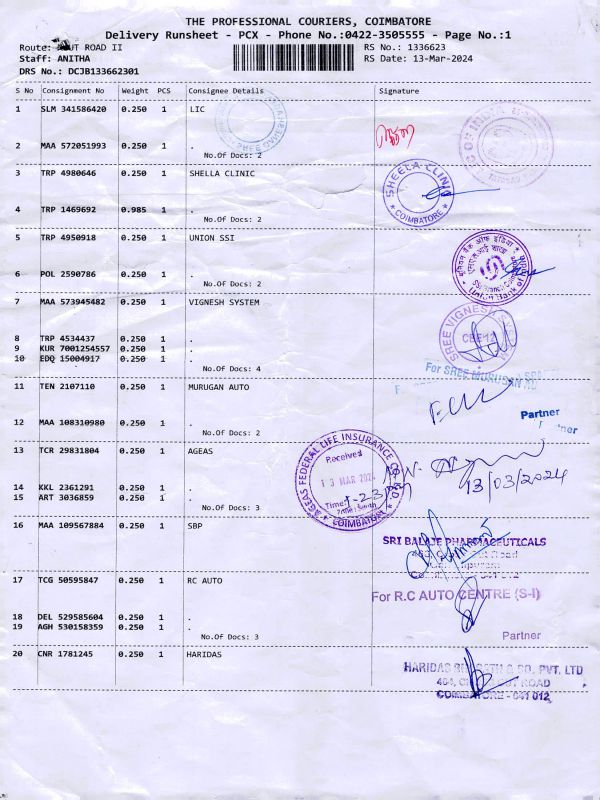 THE PROFESSIONAL COURIERS, COIMBATORE
Delivery Runsheet - PCX - Phone No.:0422-3505555 - Page No.:1
Route: ROAD II
RS No.: 1336623
Staff: ANITHA
RS Date: 13-Mar-2024
DRS No.: DCJB133662301
S No Consignment No Weight PCS Consignee Details Signature
1 SLM 341586420 0.250 1 LIC
2 MAA 572051993 0.250 1 .
No.Of Docs: 2
3 TRP 4980646 0.250 1 SHELLA CLINIC
SHEELA CLINIC
COIMBATORE
4 TRP 1469692 0.985 1 .
No.Of Docs: 2
5 TRP 4950918 0.250 1 UNION SSI
यूनियन बैंक ऑफ इंडिया
Union Bank of
6 POL 2590786 0.250 1 .
No.Of Docs: 2
7 MAA 573945482 0.250 1 VIGNESH SYSTEM
SREE VIGNESH
8 TRP 4534437 0.250 1 .
9 KUR 7001254557 0.250 1 .
10 EDQ 15004917 0.250 1 .
No.Of Docs: 4
For SREE MURUGAN
11 TEN 2107110 0.250 1 MURUGAN AUTO
Partner
12 MAA 108310980 0.250 1 .
No.Of Docs: 2
13 TCR 29831804 0.250 1 AGEAS
AGEAS FEDERAL LIFE INSURANCE CO LTD
Received
13 MAR 2024
Time:
Zone: South
COIMBATORE
13/03/2024
14 KKL 2361291 0.250 1 .
15 ART 3036859 0.250 1 .
No.Of Docs: 3
16 MAA 109567884 0.250 1 SBP
SRI BALAJE PHARMACEUTICALS
Road
17 TCG 50595847 0.250 1 RC AUTO
For R.C AUTO CENTRE (S-I)
18 DEL 529585604 0.250 1 .
19 AGH 530158359 0.250 1 .
No.Of Docs: 3
Partner
20 CNR 1781245 0.250 1 HARIDAS
HARIDAS & CO. PVT. LTD
ROAD
COIMBATORE - 641 012